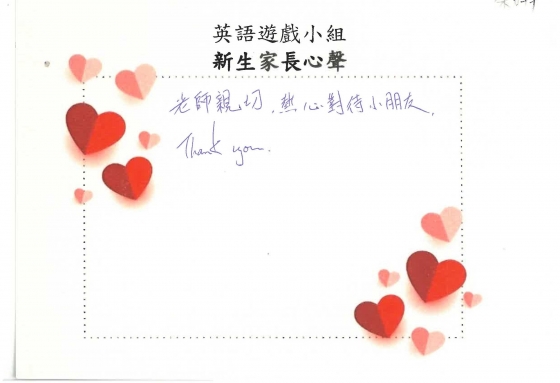 英語遊戲小組
新生家長心聲
老師親切,熱心對待小朋友,
Thank you.